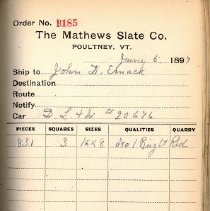 Order No. B185
The Mathews Slate Co.
POULTNEY, VT.
June 5, 1897
Ship to John D. Emack
Destination
Route
Notify
Car D L & W # 20676
PIECES SQUARES SIZES QUALITIES QUARRY
831 3 16x8 No 1 Bright Red